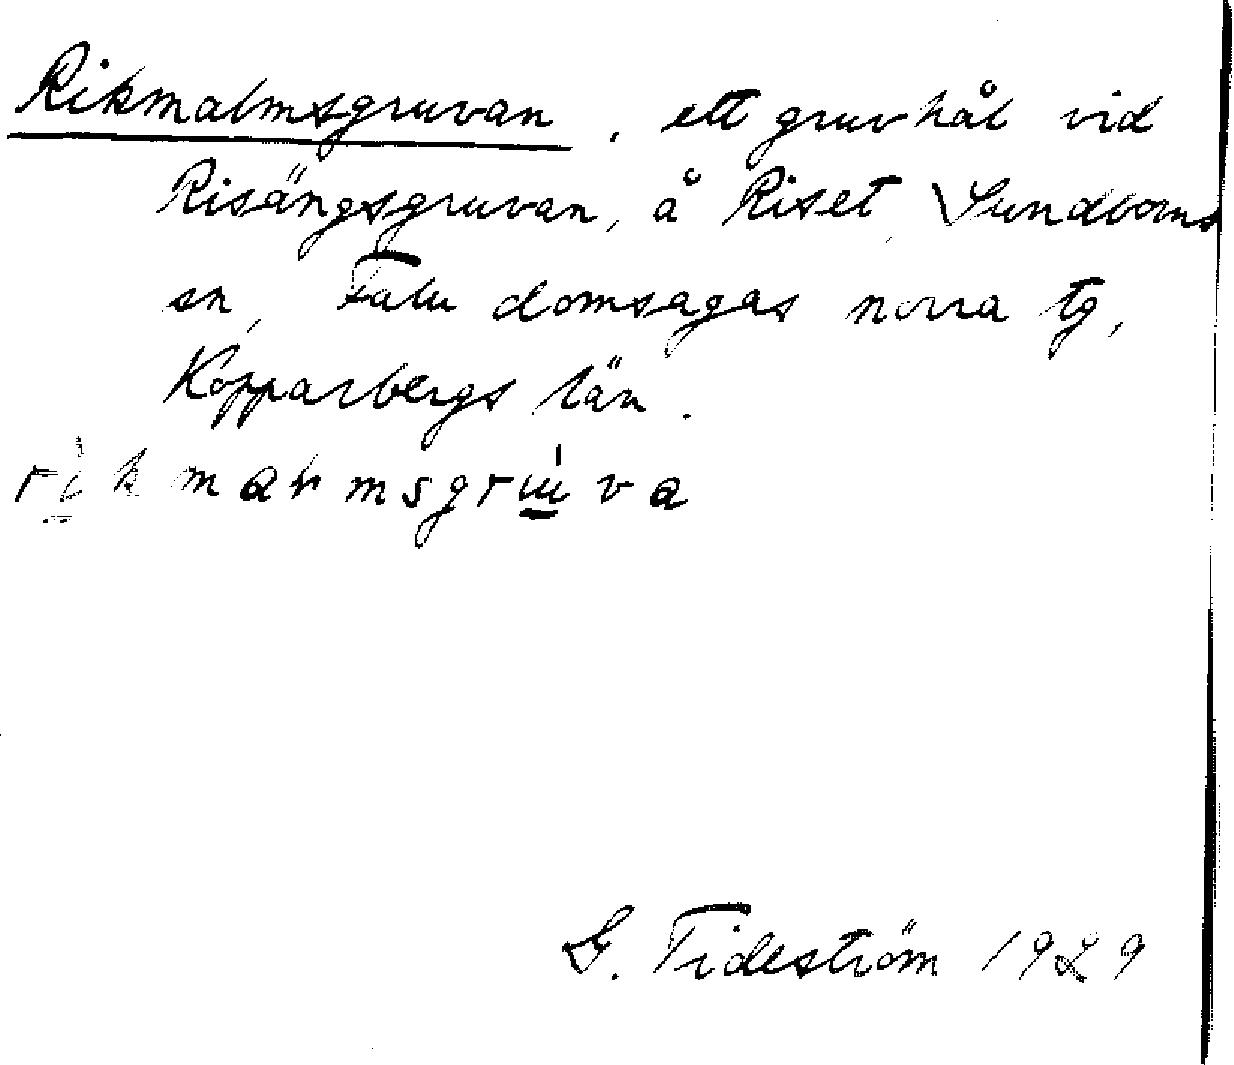 Rikmalmsgruvan, ett gruvhål vid
Risängsgruvan, å Riset, Sundborns
sn, Falu domsagas norra tg,
Kopparbergs län.
G. Tideström 1929